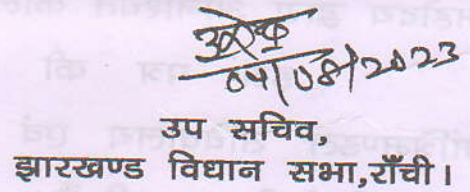 04/08/2023
उप सचिव,
झारखण्ड विधान सभा,राँची।